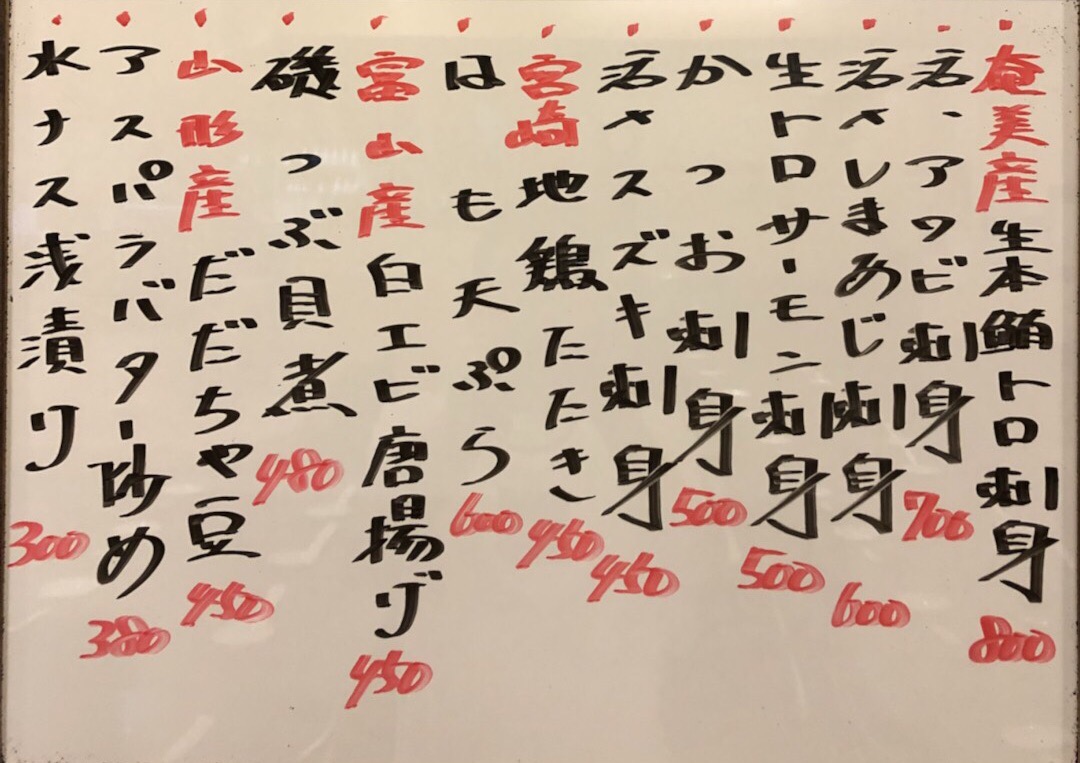 奄美産 生本鮪トロ刺身 800
活、アワビ刺身 700
活〆しまあじ刺身 600
生トロサーモン刺身 500
かつお刺身 500
活〆スズキ刺身 450
宮崎地鶏たたき 450
はも天ぷら 600
富山産 白エビ唐揚げ 450
磯つぶ貝煮 480
山形産 だだちゃ豆 450
アスパラバター炒め 380
水ナス浅漬り 300